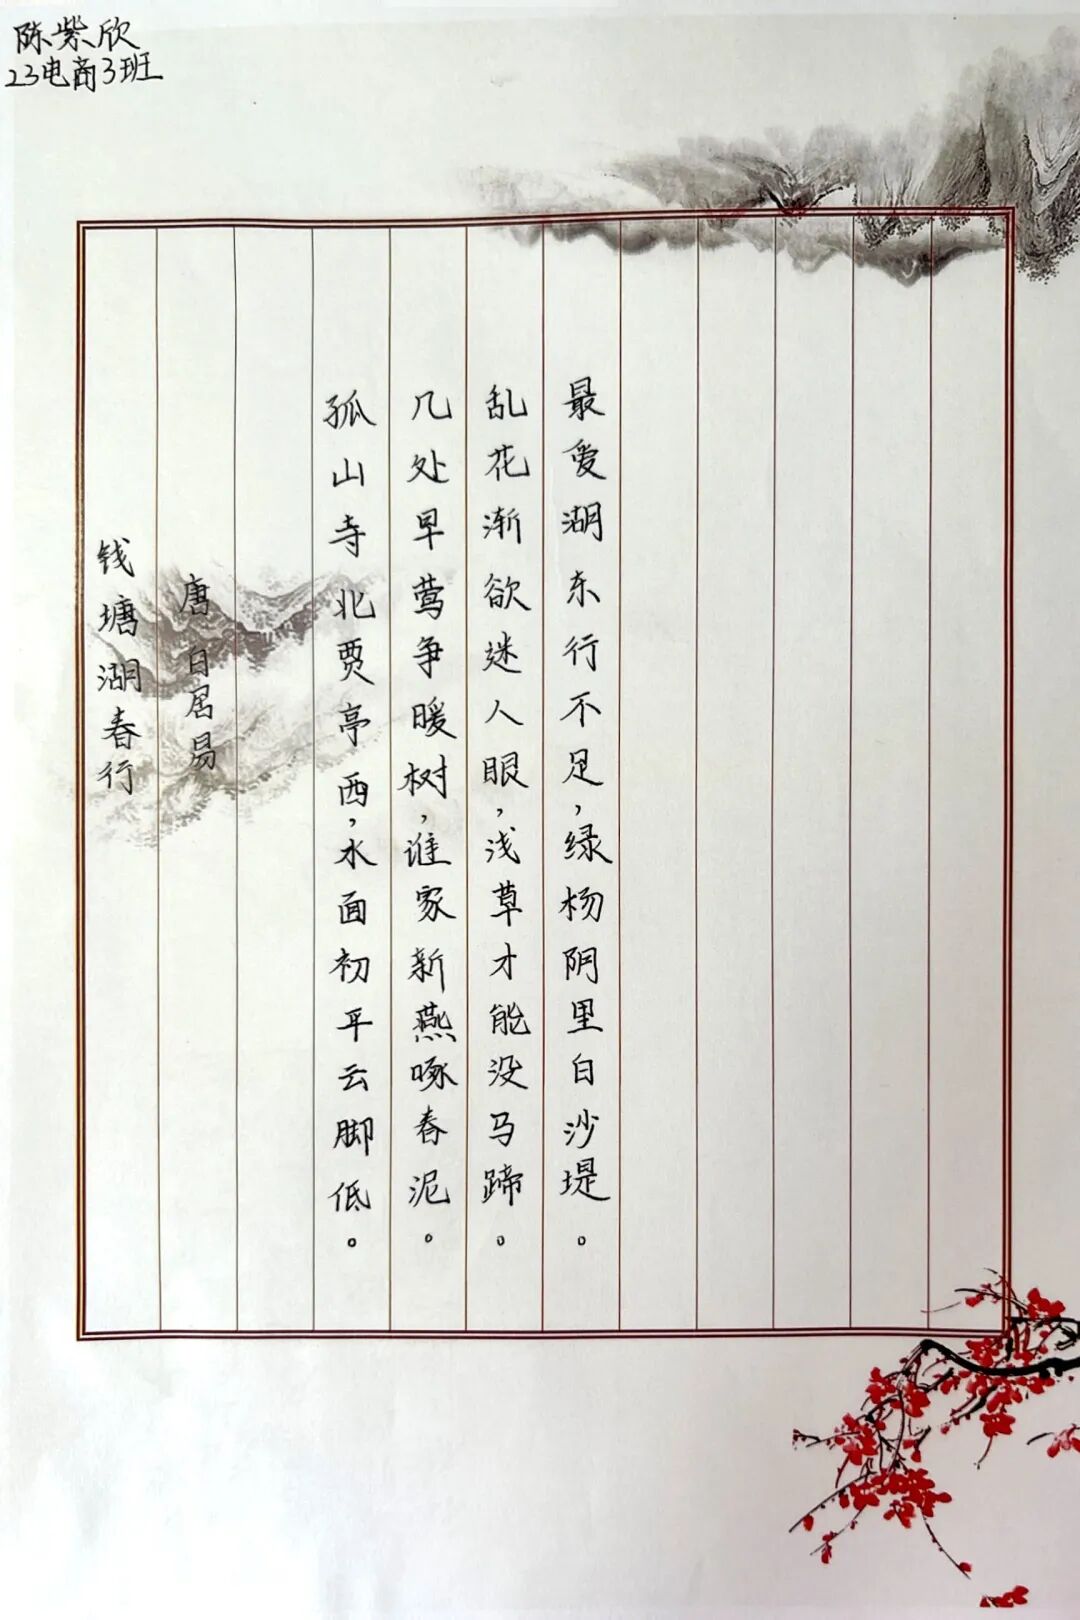 陈紫欣
23电商3班
钱塘湖春行
唐 白居易
孤山寺北贾亭西，水面初平云脚低。
几处早莺争暖树，谁家新燕啄春泥。
乱花渐欲迷人眼，浅草才能没马蹄。
最爱湖东行不足，绿杨阴里白沙堤。